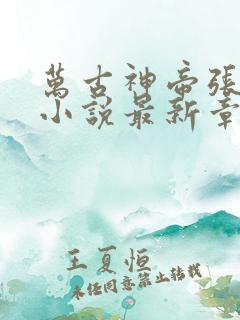 萬古神帝張
小說最新章
王夏恒
未经同意禁止转载